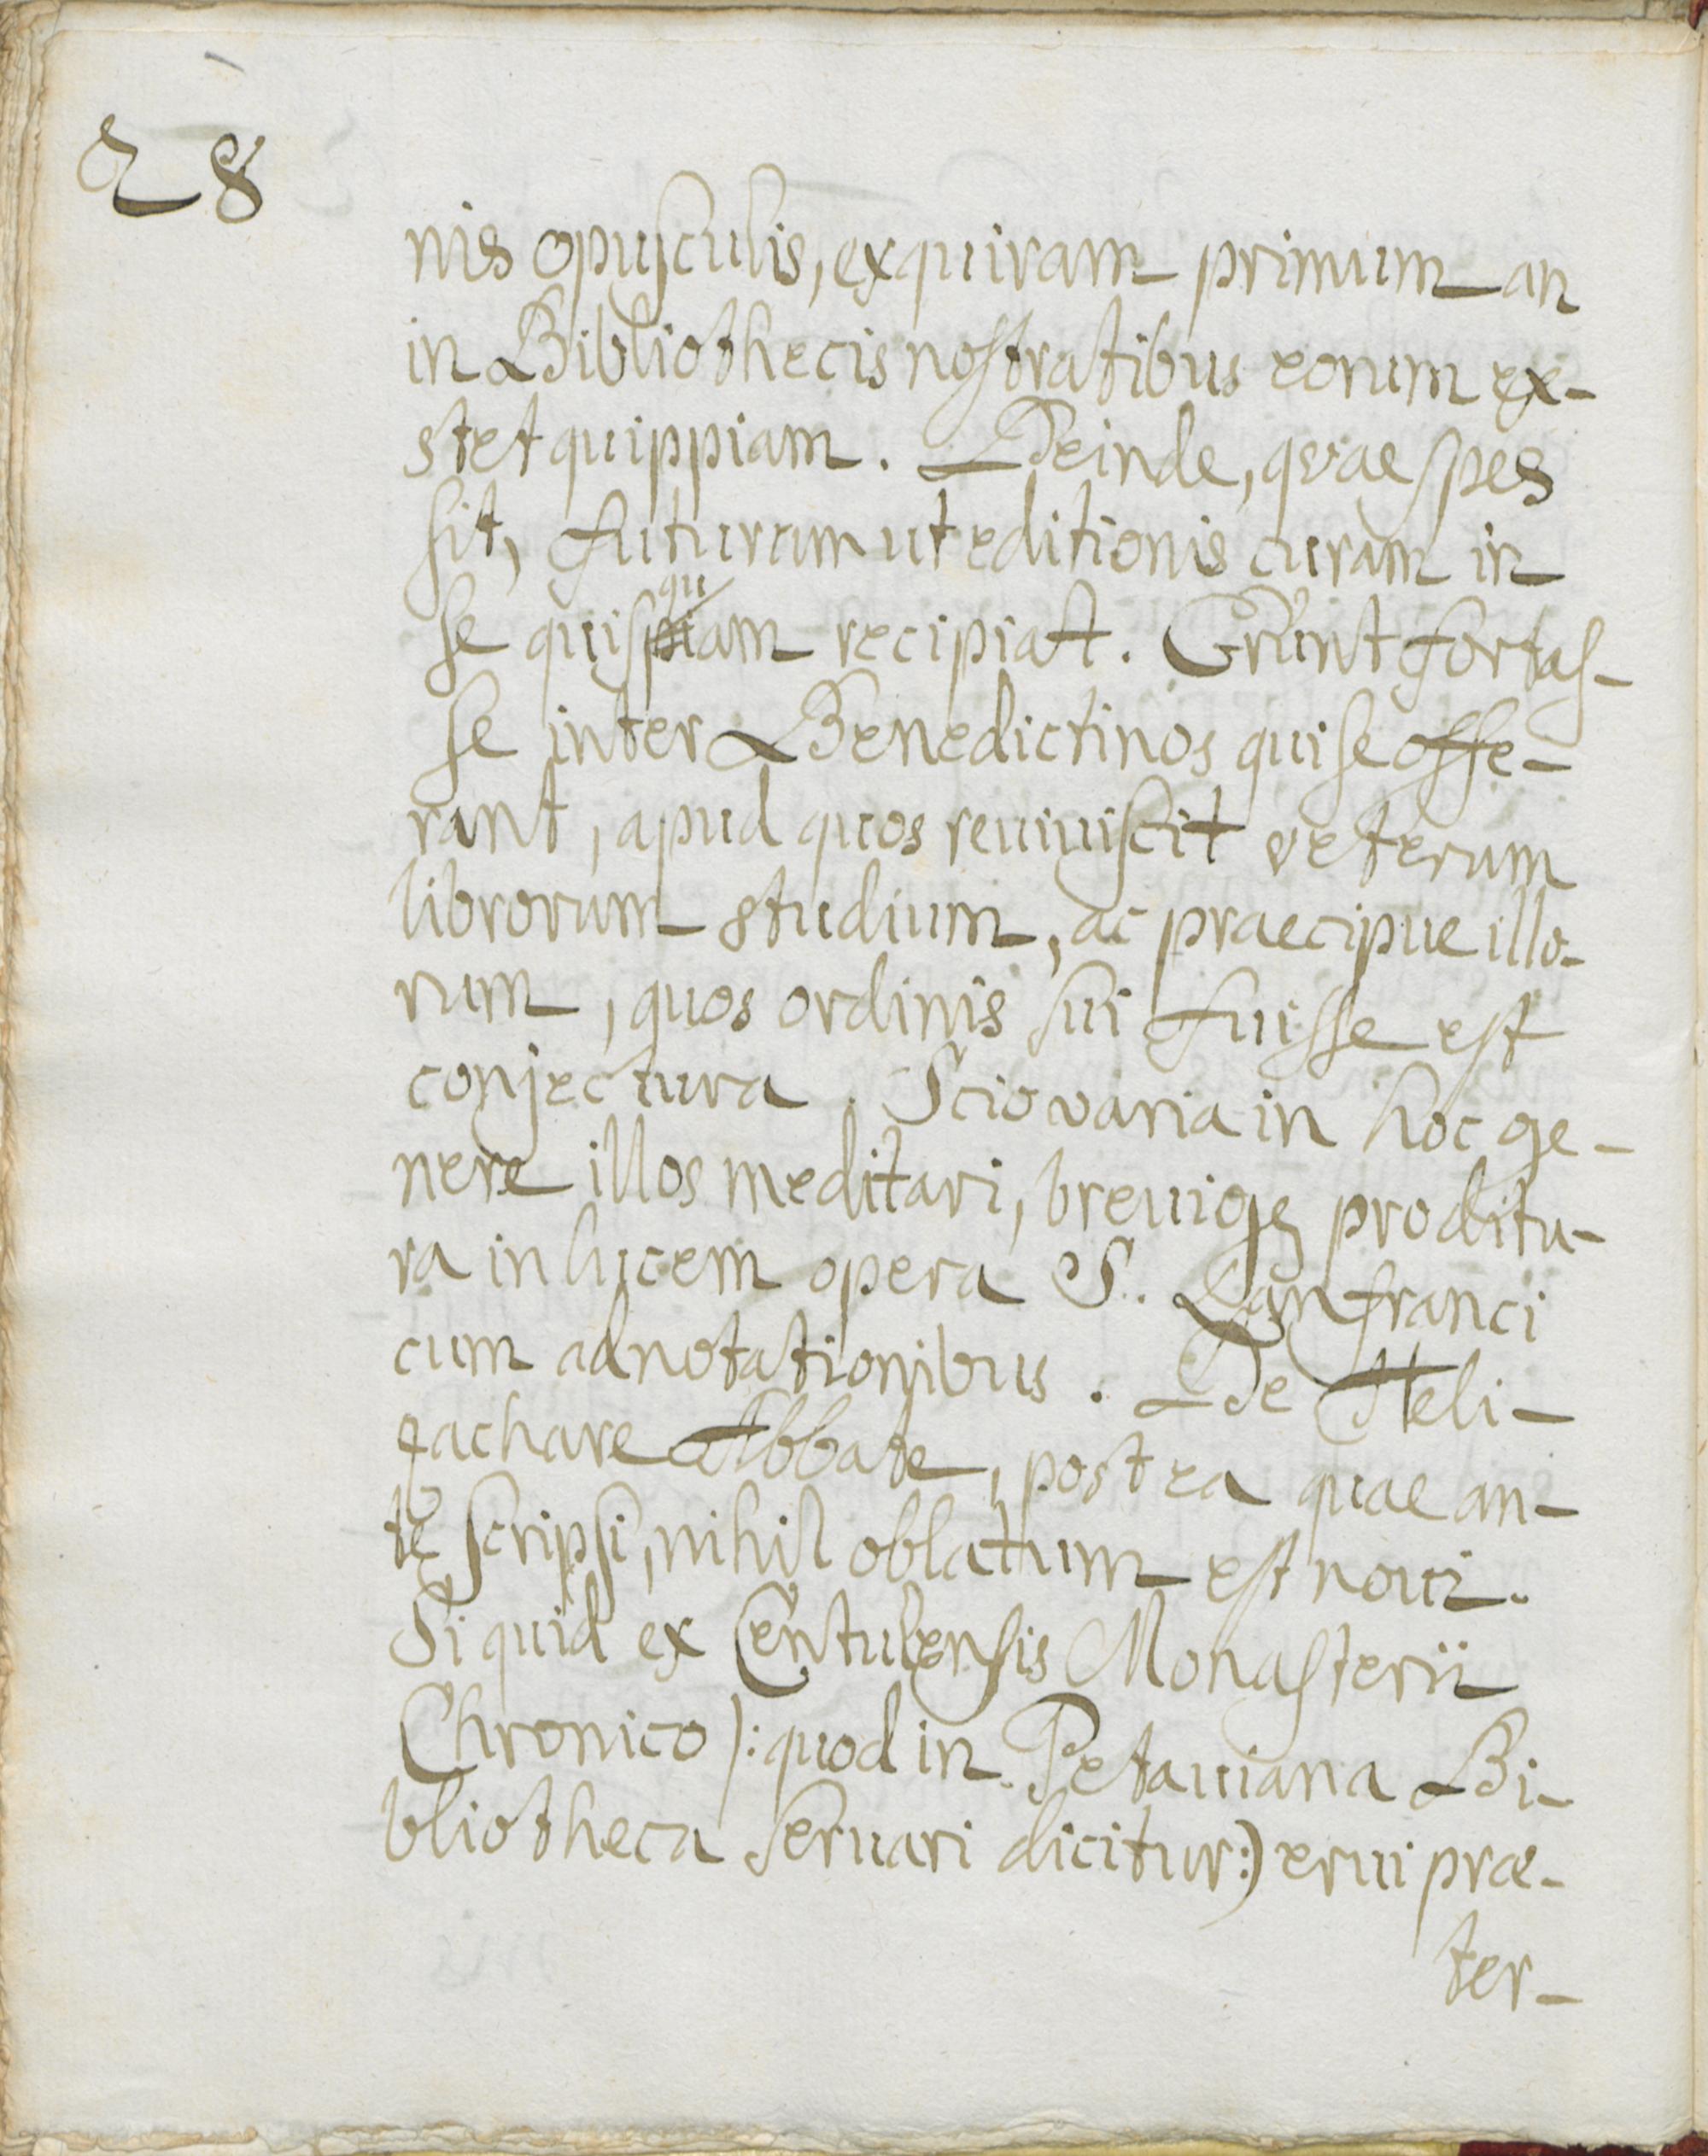 28
nis opusculis, exquiram primum an
in Bibliothecis nostratibus eorum ex-
stet quippiam. Deinde, quae spes
sit, futurum ut editionis curam in
qu
se quispiam recipiat. Erunt fortas-
se inter Benedictinos qui se offe-
rant, apud quos reuiuiscit veterum
librorum studium, ac praecipue illo-
rum, quos ordinis sui fuisse est
conjectura. Scio varia in hoc ge-
nere illos meditari, breuiqꝫ proditu-
ra in lucem opera S. Lanfranci
cum adnotationibus. De Heli-
sachare Abbate, post ea quae an-
te scripsi, nihil oblatum est noui.
Si quid ex Centulensis Monasterii
Chronico /: quod in Petauiana Bi-
bliotheca seruari dicitur :) erui prae-
ter-